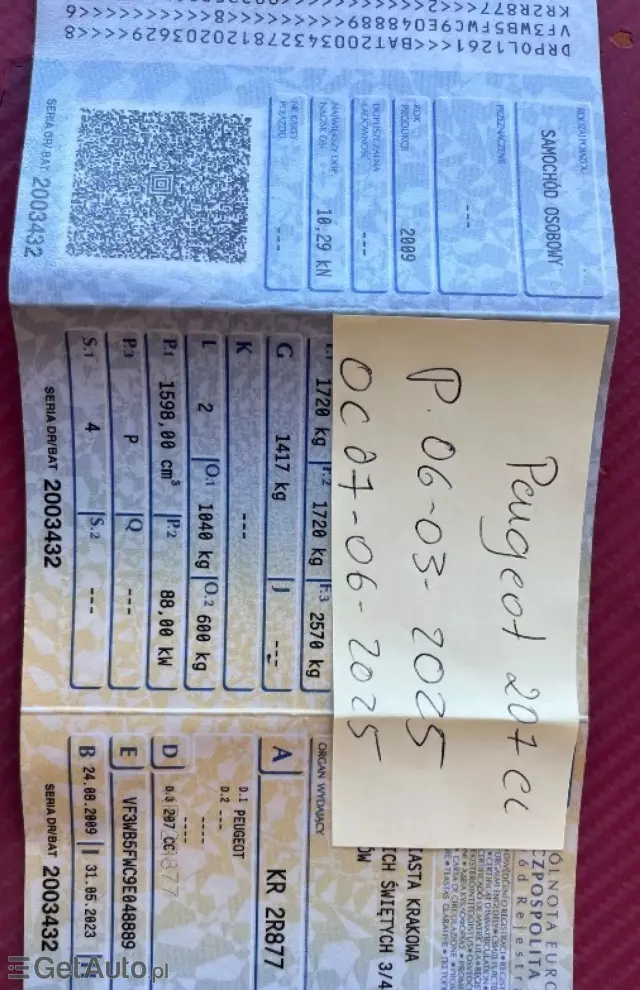 DRPOL1261<<<BAT2003432781202036​29<<8
VF3WB5FWC9E048889<<<<<<<<8<
KR2R877<<
RODZAJ POJAZDU
SAMOCHÓD OSOBOWY
PRZEZNACZENIE
---
ROK PRODUKCJI
2009
DOPUSZCZALNA ŁADOWNOŚĆ
---
NAJWIĘKSZY DOP. NACISK OSI
10,29 kN
NR KARTY POJAZDU
---
SERIA DR/BAT 2003432
Peugeot 207 CC
P. 06-03-2025
OC 27-06-2025
1720 kg F.2 1720 kg F.3 2570 kg
G 1417 kg J ---
K ---
L 2 O.1 1040 kg O.2 600 kg
P.1 1598,00 cm³ P.2 88,00 kW
P.3 P Q ---
S.1 4 S.2 ---
SERIA DR/BAT 2003432
CZPOSPOLITA
ORGAN WYDAJĄCY
IASTA KRAKOWA
ICH ŚWIĘTYCH 3/4
ÓW
A KR 2R877
D.1 PEUGEOT
D.2 ---
----
----
D D.3 207 CC
E VF3WB5FWC9E048889
B 24.08.2009 I 31.05.2023
SERIA DR/BAT 2003432
GetAuto.pl